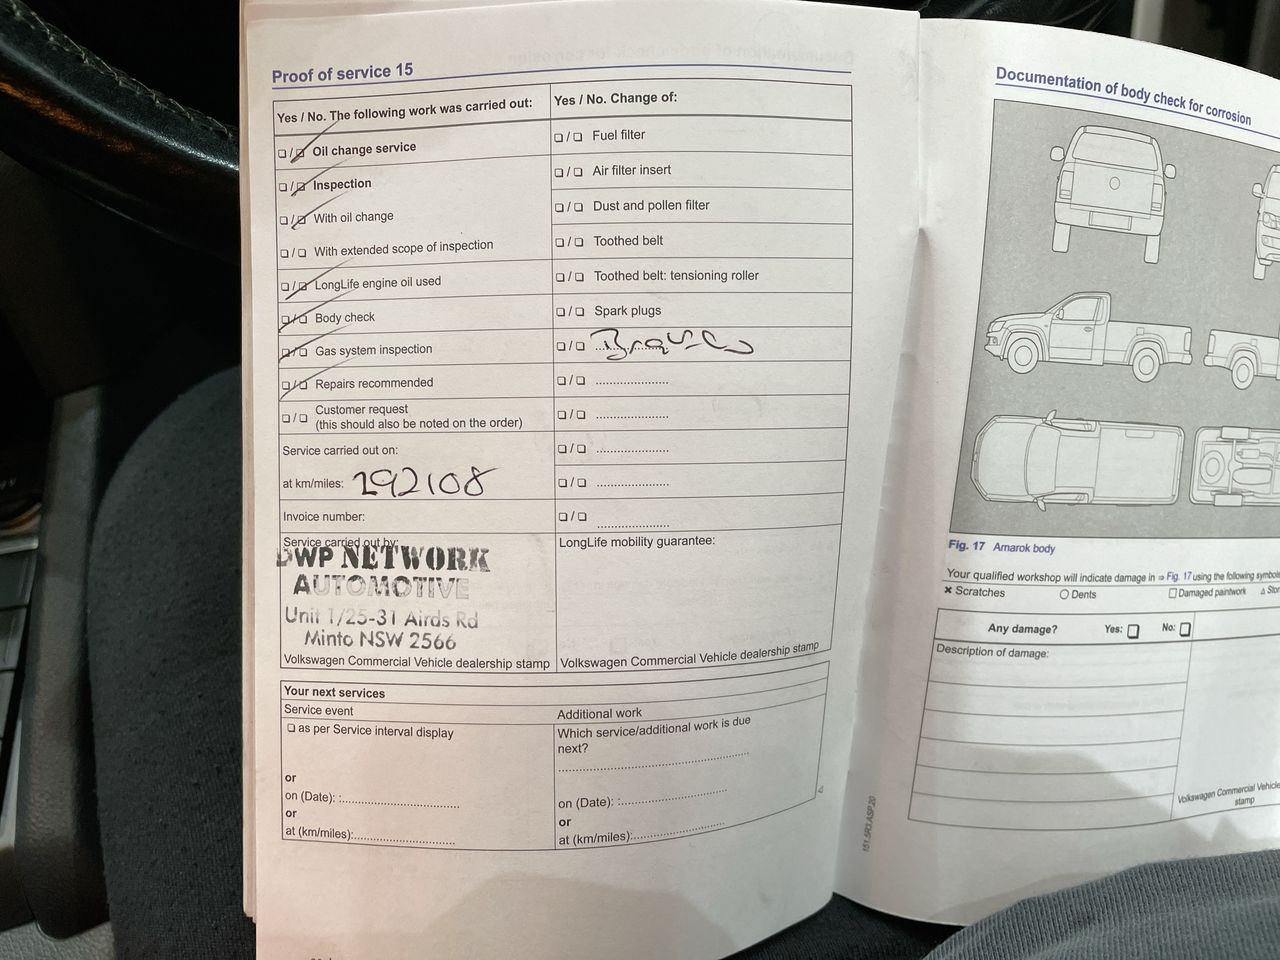 Proof of service 15
Yes / No. The following work was carried out:
❏/❏ Oil change service
❏/❏ Inspection
❏/❏ With oil change
❏/❏ With extended scope of inspection
❏/❏ LongLife engine oil used
❏/❏ Body check
❏/❏ Gas system inspection
❏/❏ Repairs recommended
❏/❏ Customer request
(this should also be noted on the order)
Service carried out on:
at km/miles: 292108
Invoice number:
Service carried out by:
DWP NETWORK
AUTOMOTIVE
Unit 1/25-31 Airds Rd
Minto NSW 2566
Volkswagen Commercial Vehicle dealership stamp
Yes / No. Change of:
❏/❏ Fuel filter
❏/❏ Air filter insert
❏/❏ Dust and pollen filter
❏/❏ Toothed belt
❏/❏ Toothed belt: tensioning roller
❏/❏ Spark plugs
❏/❏
❏/❏ ......................
❏/❏ ......................
❏/❏ ......................
❏/❏ ......................
❏/❏ ......................
LongLife mobility guarantee:
Volkswagen Commercial Vehicle dealership stamp
Your next services
Service event
❏ as per Service interval display
or
on (Date): :....................................
or
at (km/miles):..............................
Additional work
Which service/additional work is due
next?
..........................................................
on (Date): :.................................
or
at (km/miles):...........................
151.5R3.ASP.20
Documentation of body check for corrosion
Fig. 17 Amarok body
Your qualified workshop will indicate damage in ⇒ Fig. 17 using the following symbols
✖ Scratches ○ Dents ❏ Damaged paintwork
Any damage? Yes: ❏ No: ❏
Description of damage:
Volkswagen Commercial Vehicle
stamp